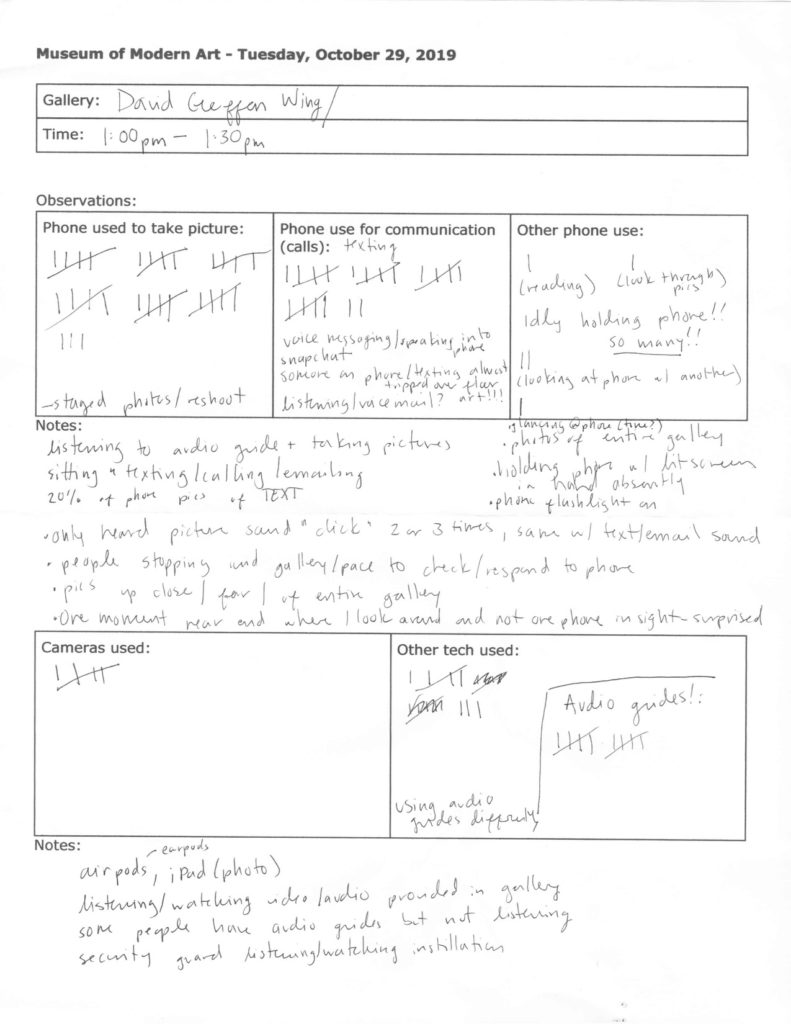 Museum of Modern Art - Tuesday, October 29, 2019
Gallery: David Geffen Wing
Time: 1:00pm – 1:30pm
Observations:
Phone used to take picture:
|||
-staged photos/reshoot
Phone use for communication
(calls): texting
||
voice messaging/speaking into
phone
snapchat
someone on phone/texting almost
tripped over floor
listening/voicemail? art!!!
Other phone use:
| |
(reading) (look through)
pics
Idly holding phone!!
so many!!
||
(looking at phone w/ another)
|
Notes:
listening to audio guide + taking pictures
sitting + texting/calling/emailing
20% of phone pics of TEXT
• glancing @ phone (time?)
• photos of entire gallery
• holding phone w/ lit screen
in hand absently
• phone flashlight on
• only heard picture sound "click" 2 or 3 times, same w/ text/email sound
• people stopping mid gallery/pace to check/respond to phone
• pics up close / far / of entire gallery
• One moment near end where I look around and not one phone in sight - surprised
Cameras used:
Other tech used:
|||
using audio
guides differently
Audio guides!:
Notes:
airpods, iPad (photo)
- earpods
listening/watching video/audio provided in gallery
some people have audio guides but not listening
security guard listening/watching instillation